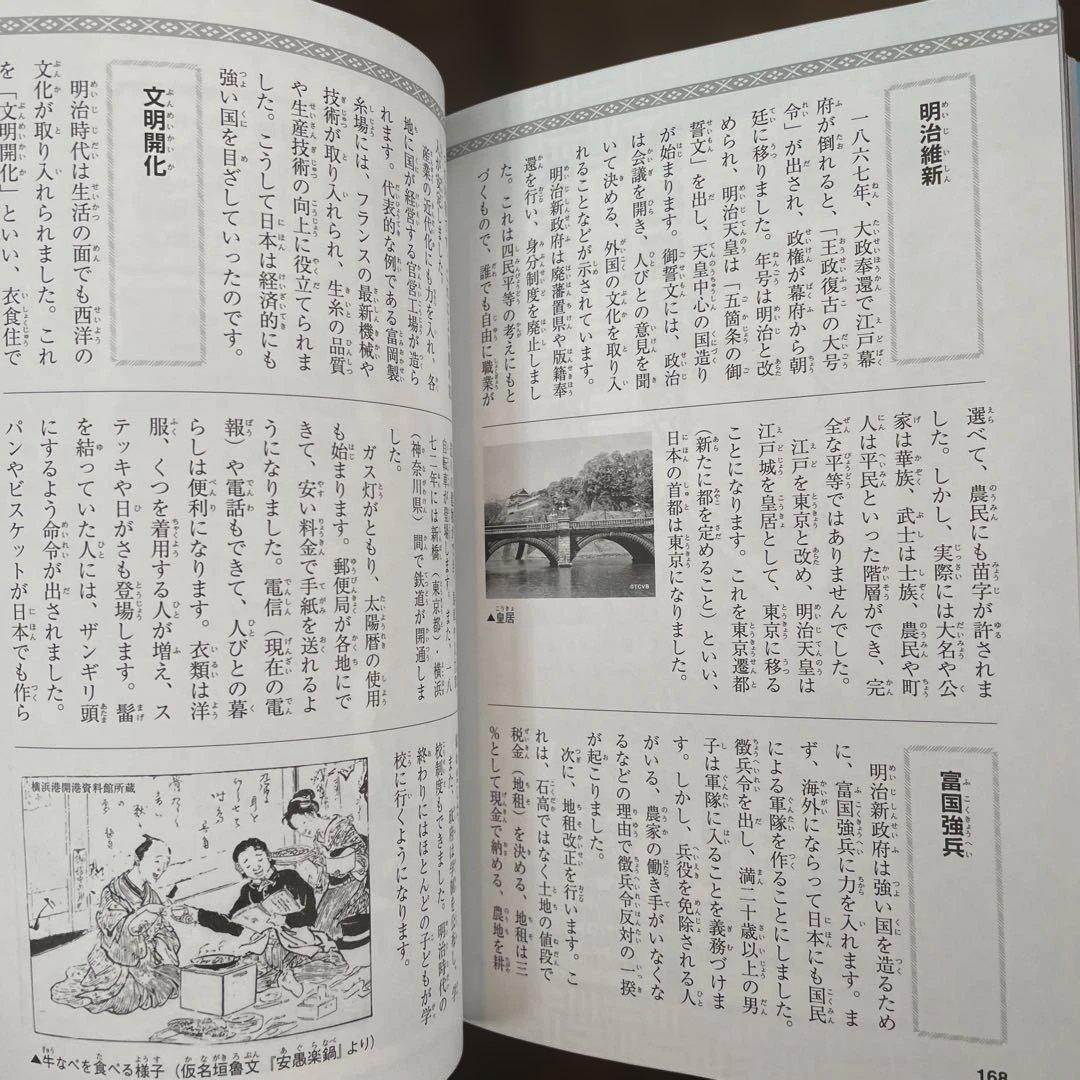 明治維新
一八六七年、大政奉還で江戸幕
府が倒れると、「王政復古の大号
令」が出され、政権が幕府から朝
廷に移りました。年号は明治と改
められ、明治天皇は「五箇条の御
誓文」を出し、天皇中心の国造り
が始まります。御誓文には、政治
は会議を開き、人びとの意見を聞
いて決める、外国の文化を取り入
れることなどが示されています。
明治新政府は廃藩置県や版籍奉
還を行い、身分制度を廃止しまし
た。これは四民平等の考えにもと
づくもので、誰でも自由に職業が
選べて、農民にも苗字が許されま
した。しかし、実際には大名や公
家は華族、武士は士族、農民や町
人は平民といった階層ができ、完
全な平等ではありませんでした。
江戸を東京と改め、明治天皇は
江戸城を皇居として、東京に移る
ことになります。これを東京遷都
（新たに都を定めること）といい、
日本の首都は東京になりました。
©TCVB
▲皇居
富国強兵
明治新政府は強い国を造るため
に、富国強兵に力を入れます。ま
ず、海外にならって日本にも国民
による軍隊を作ることにしました。
徴兵令を出し、満二十歳以上の男
子は軍隊に入ることを義務づけま
す。しかし、兵役を免除される人
がいる、農家の働き手がいなくな
るなどの理由で徴兵令反対の一揆
が起こりました。
次に、地租改正を行います。こ
れは、石高ではなく土地の値段で
税金（地租）を決める、地租は三
％として現金で納める、農地を耕
168
産業の近代化にも力を入れ、各
地に国が経営する官営工場が造ら
れます。代表的な例である富岡製
糸場には、フランスの最新機械や
技術が取り入れられ、生糸の品質
や生産技術の向上に役立てられま
した。こうして日本は経済的にも
強い国を目ざしていったのです。
文明開化
明治時代は生活の面でも西洋の
文化が取り入れられました。これ
を「文明開化」といい、衣食住で
自転車が登場します。また、一八
七二年には新橋（東京都）・横浜
（神奈川県）間で鉄道が開通しま
した。
ガス灯がともり、太陽暦の使用
も始まります。郵便局が各地にで
きて、安い料金で手紙を送れるよ
うになりました。電信（現在の電
報）や電話もできて、人びとの暮
らしは便利になります。衣類は洋
服、くつを着用する人が増え、ス
テッキや日がさも登場します。髷
を結っていた人には、ザンギリ頭
にするよう命令が出されました。
パンやビスケットが日本でも作ら
校制度もできました。明治時代の
終わりにはほとんどの子どもが学
校に行くようになります。
横浜港開港資料館所蔵
▲牛なべを食べる様子（仮名垣魯文『安愚楽鍋』より）